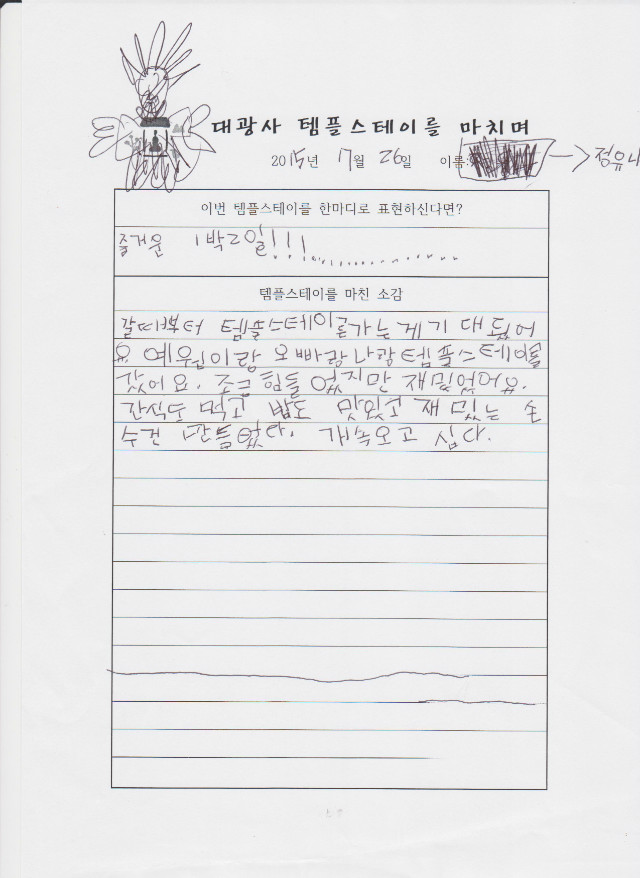 대광사 템플스테이를 마치며
2015년 7월 26일 이름: → 정유나
이번 템플스테이를 한마디로 표현하신다면?
즐거운 1박2일!!!
템플스테이를 마친 소감
갈때부터 템플스테이를가는게기대됬어
요 예원이랑 오빠랑나랑템플스테이를
갔어요. 조금힘들었지만 재미있었어요.
간식도 먹고 밥도 맛있고 재밌는 손
수건 만들었다. 개속오고 십다.